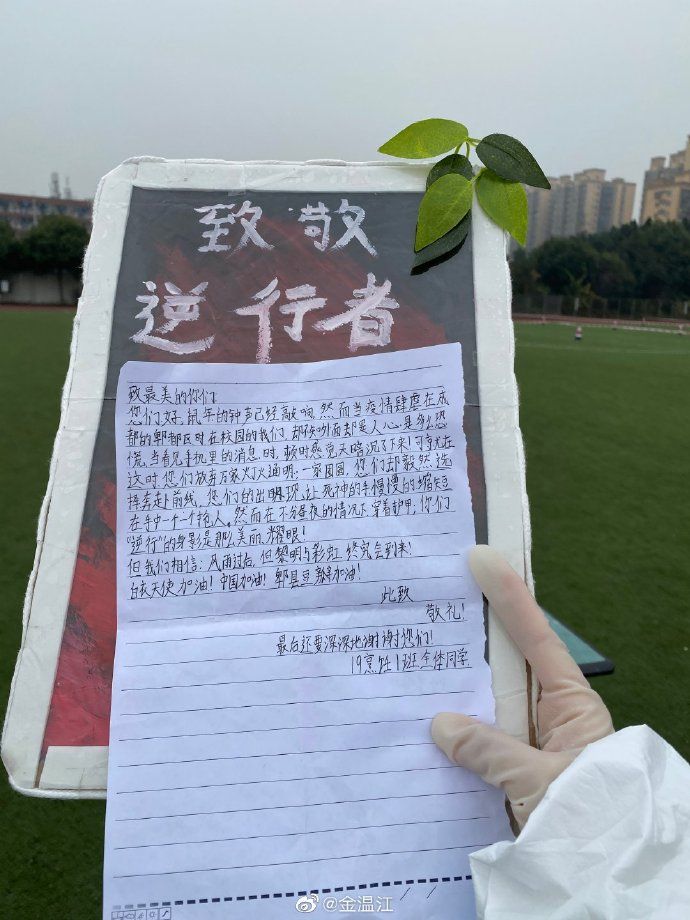 致敬
逆行者
致最美的你们:
您们好,鼠年的钟声已经敲响,然而当疫情肆虐在成
都的郫都区时在校园的我们,却得响面却是人心是多么恐
慌,当看见手机里的消息时,顿时感觉天暗沉了下来!可享尤在
这时您们放弃万家火丁火通明,一家团圆,您们却毅然选
择奔赴前线,您们的出现,让死神的手慢慢的缩短
在手中一个一个抢人。然而在不分昼夜的情况下,穿着护甲,你们
"逆行"的身影是那么美丽、耀眼!
但我们相信:风雨过后,但黎明与彩虹终究会到来!
白衣天使加油!中国加油!郫县豆瓣加油!
此致
敬礼!
最后还要深深地谢谢您们!
19烹饪1班全体同学
@金温江